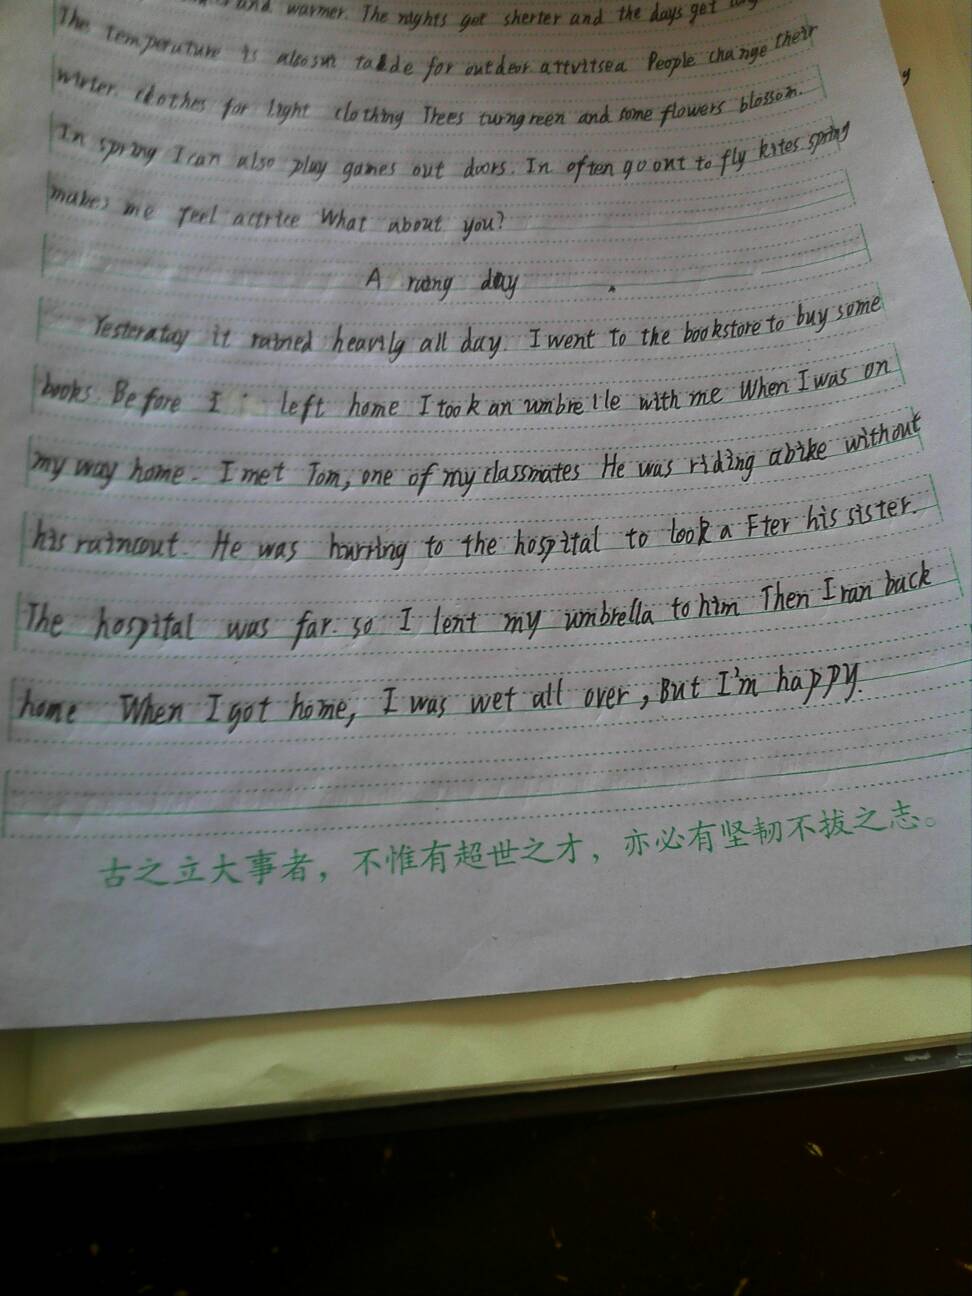 and warmer. The nights get sherter and the days get
The temperature is alsosui takde for outdeor attvitsea People change their
winter. clothes for light clothing Trees turngreen and some flowers blossom.
In spring I can also play games out doors. In often go out to fly kites spring
makes me feel actrice What about you?
A raing day
Yesteratay it rained heavily all day. I went to the bookstore to buy some
books. Before I left home I took an umbrelle with me When I was on
my way home. I met Tom, one of my classmates He was riding abike without
his raincout. He was hurring to the hospital to look a Fter his sister.
The hospital was far. so I lent my umbrella to him Then I ran back
home When I got home, I was wet all over, But I'm happy.
古之立大事者，不惟有超世之才，亦必有坚韧不拔之志。